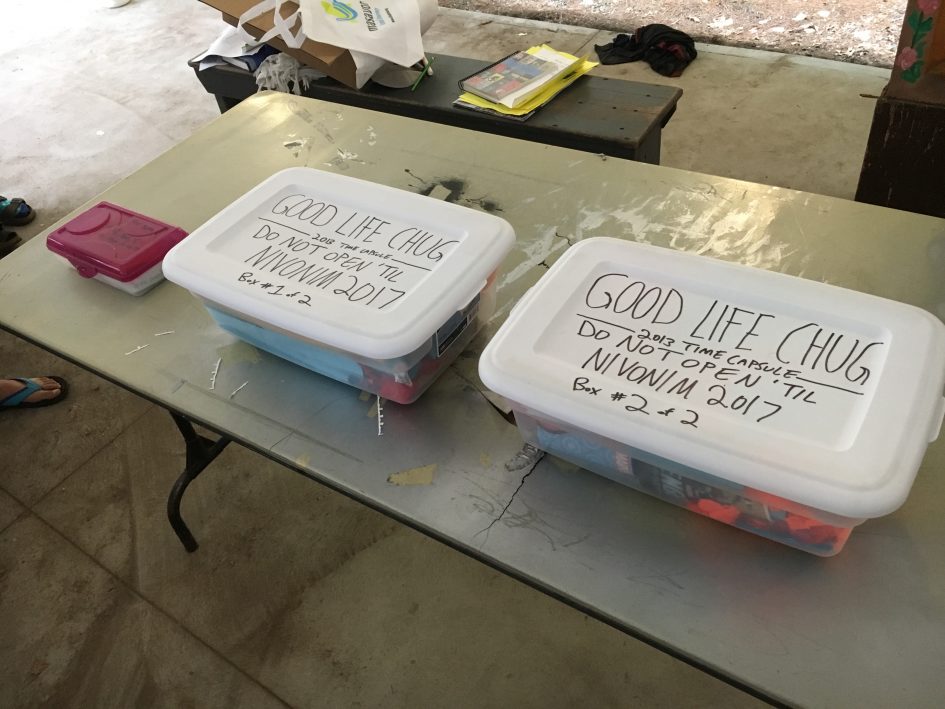 GOOD LIFE CHUG
2013 TIME CAPSULE
DO NOT OPEN 'TIL
NIVONIM 2017
BOX #1 of 2
GOOD LIFE CHUG
2013 TIME CAPSULE
DO NOT OPEN 'TIL
NIVONIM 2017
BOX #2 of 2